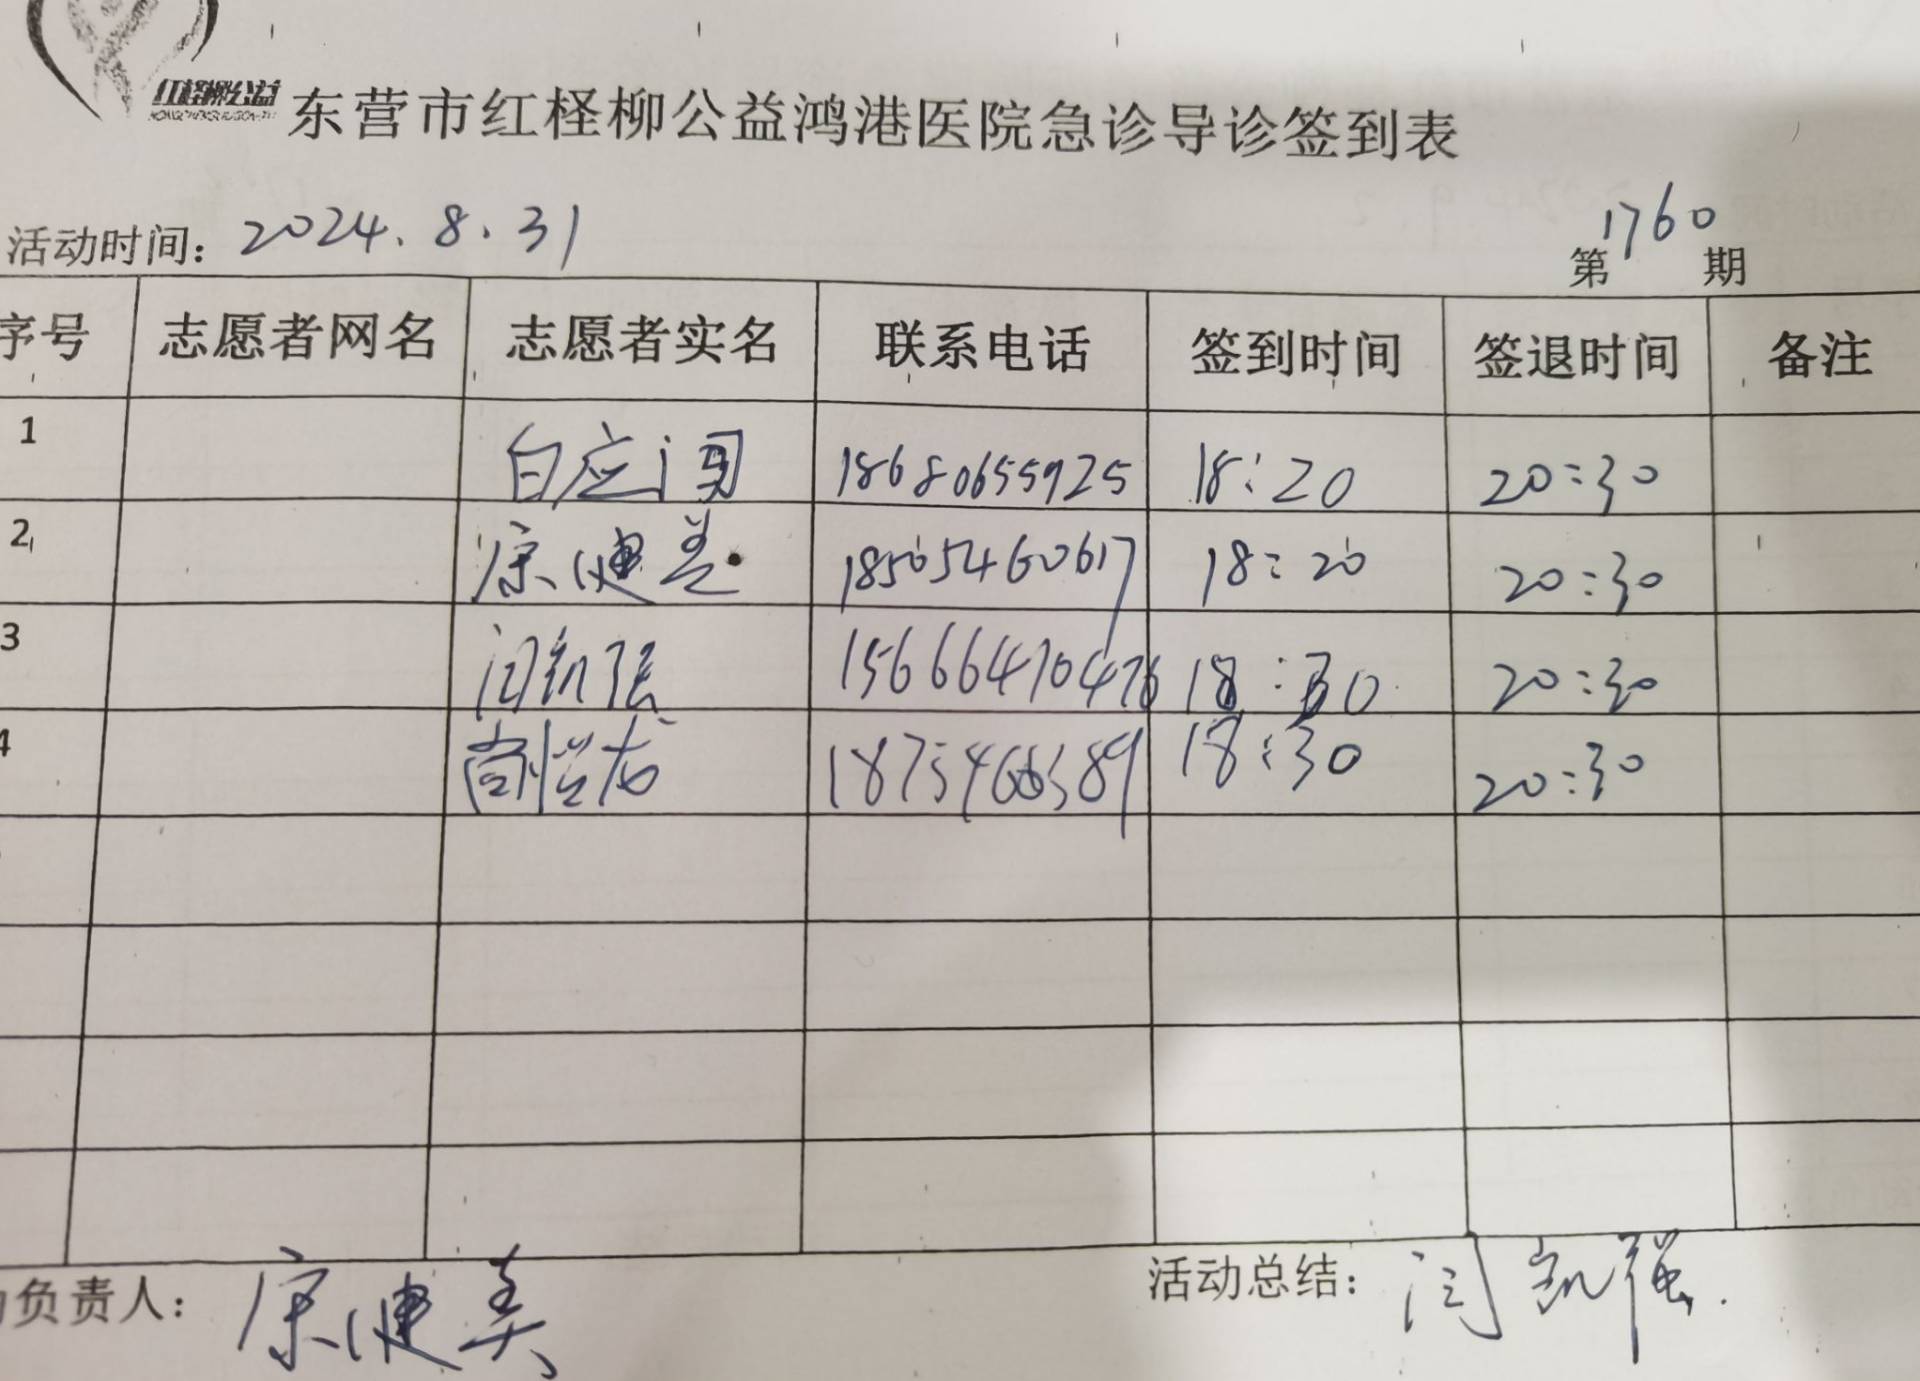 红柽柳公益
东营市红柽柳公益鸿港医院急诊导诊签到表
活动时间：2024.8.31 第1760期
序号 志愿者网名 志愿者实名 联系电话 签到时间 签退时间 备注
1 白应 18680655925 18:20 20:30
2 康健美 18505460617 18:20 20:30
3 15666470476 18:30 20:30
4 18:30 20:30
负责人：康健美 活动总结：闫凯强.